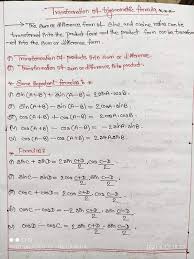 Transformation of trigonometric formula
→ The sum or difference form of sine and cosine ratios can be
transformed into the product form and the product form can be transform-
ed into the sum or difference form.
① Transformation of products into sum or difference
② Transformation of sum or difference into product
→ Some Important formulas
① sin(A+B) + sin(A-B) = 2sinA·cosB
② sin(A+B) - sin(A-B) = 2cosA·sinB
③ cos(A+B) + cos(A-B) = 2cosA·cosB
④ cos(A+B) - cos(A-B) = -2sinA·sinB
→ Formulas
① sinC + sinD = 2 sin C+D/2 · cos C-D/2
② sinC - sinD = 2 cos C+D/2 · sin C-D/2
③ cosC + cosD = 2 cos C+D/2 · cos C-D/2
④ cosC - cosD = -2 sin C+D/2 · sin C-D/2
⑤ cosD - cosC = 2 sin C+D/2 · sin C-D/2